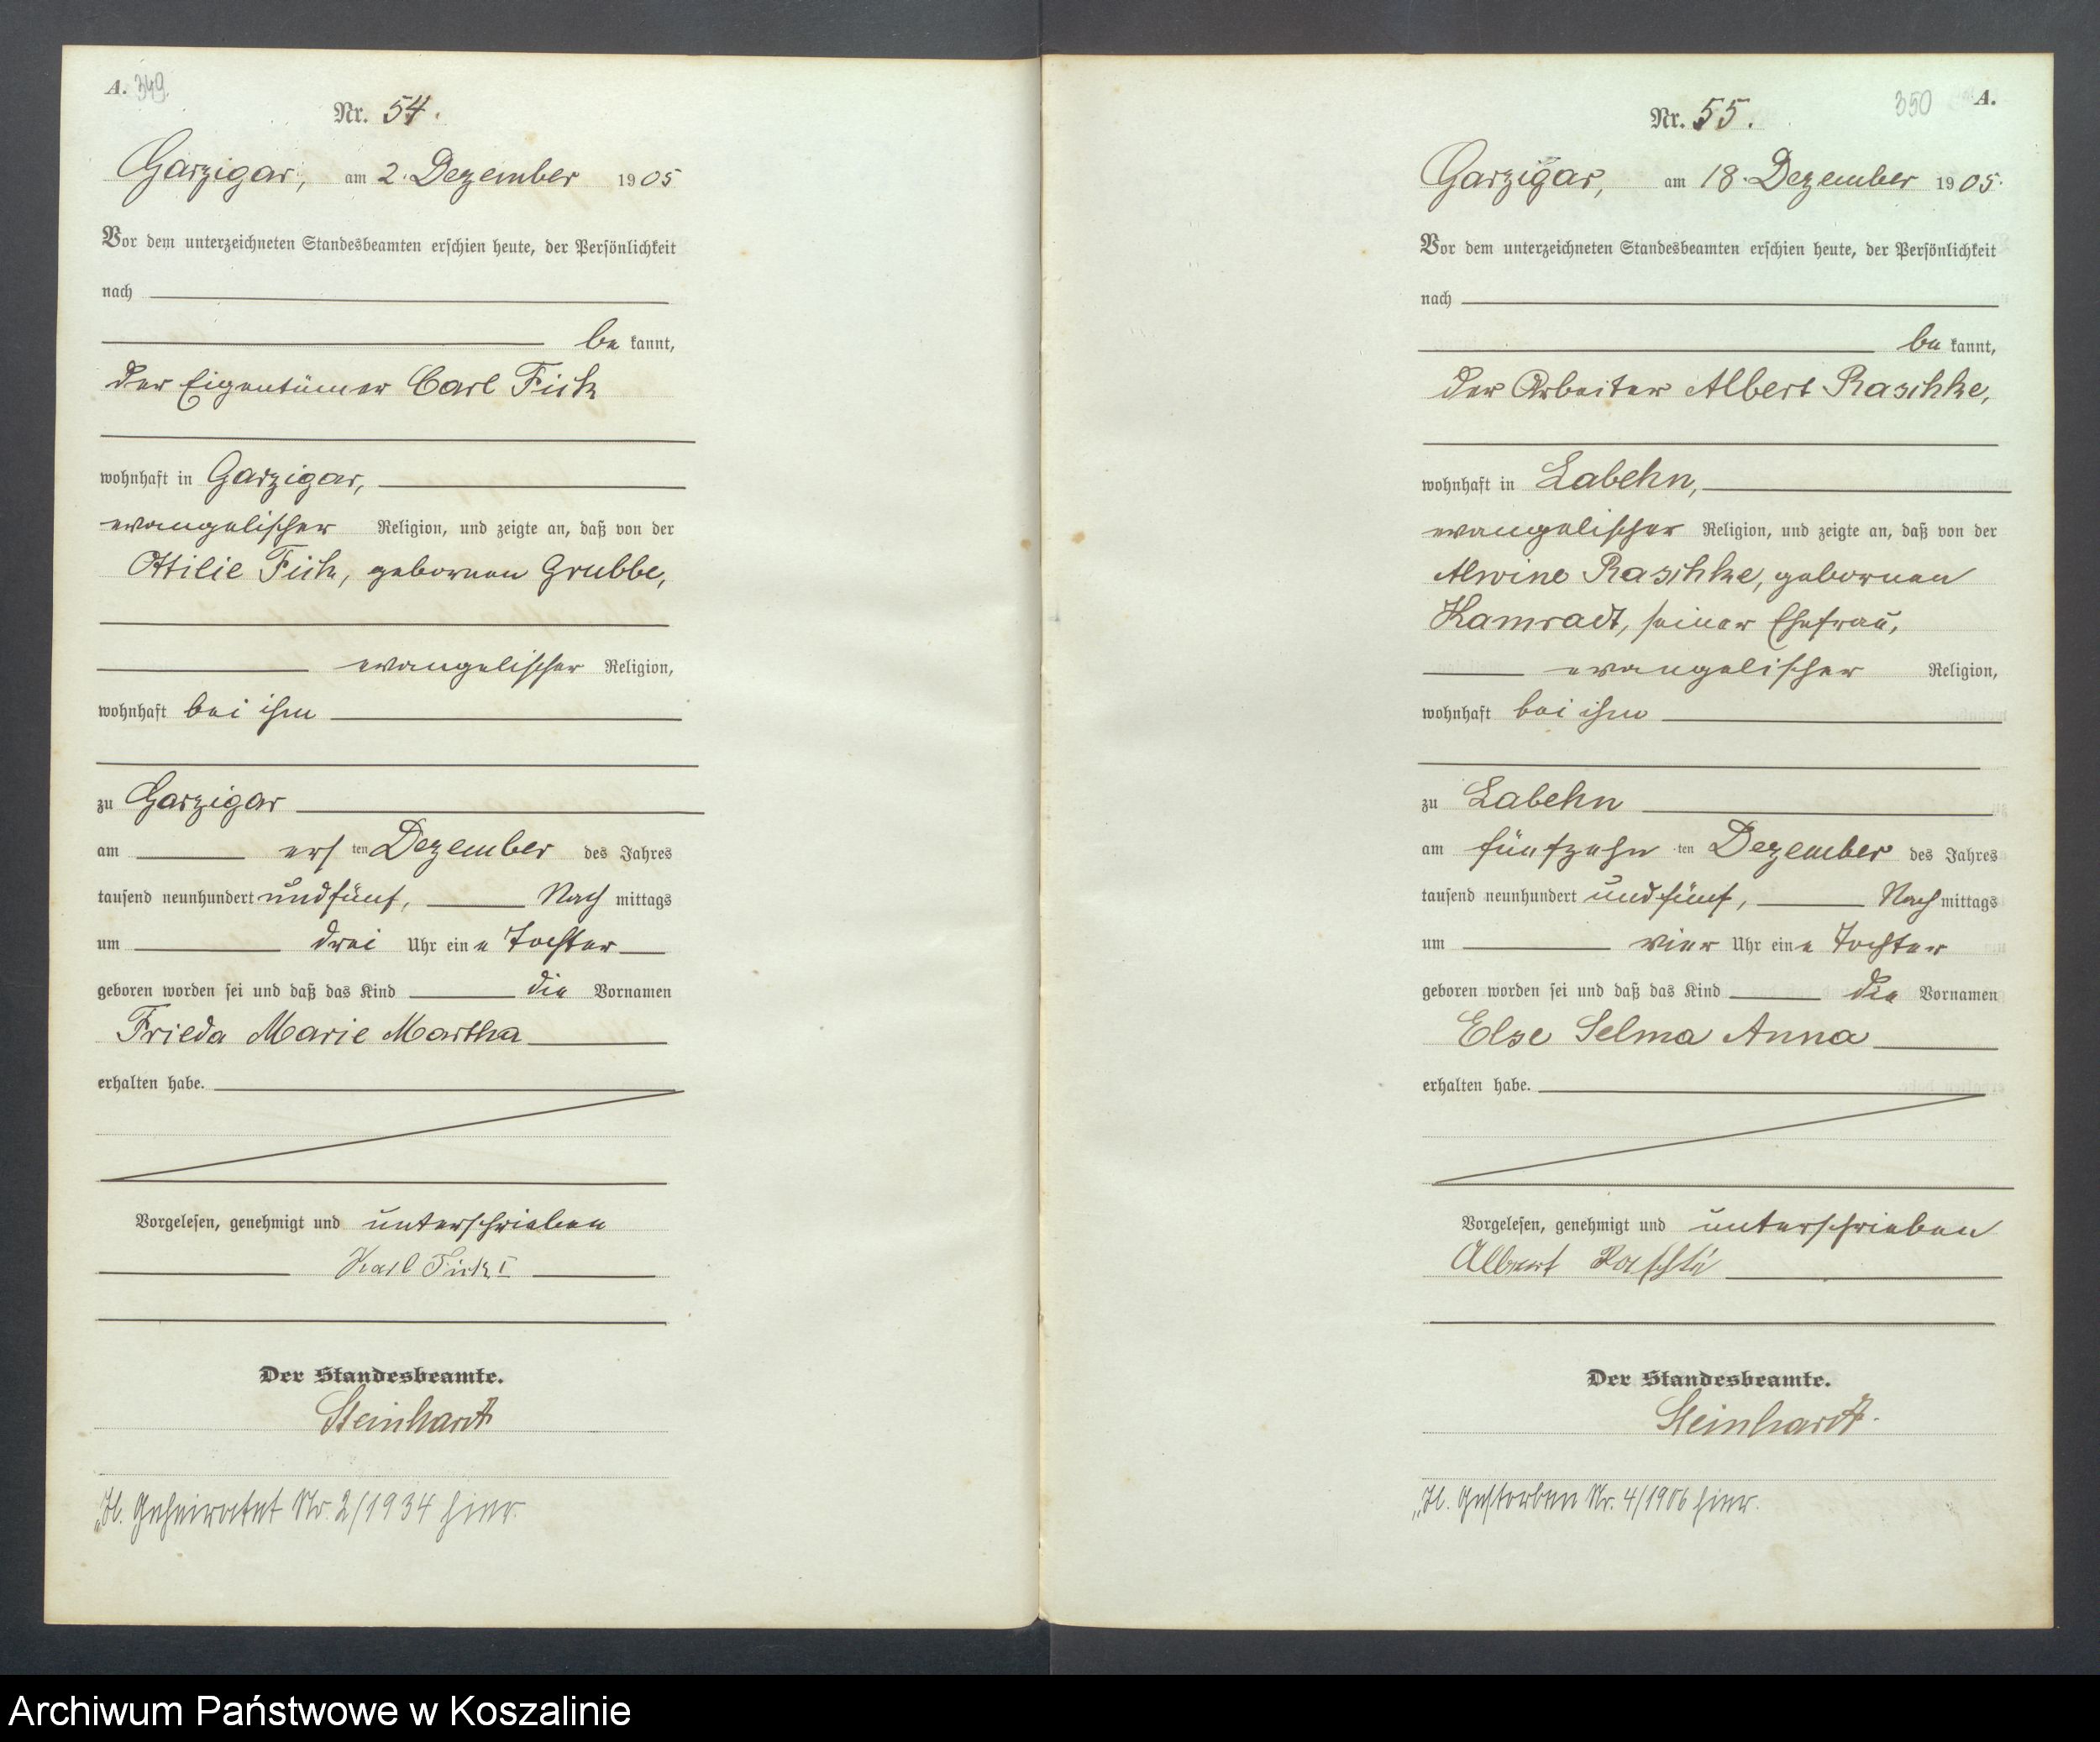 A. 349.
Nr. 54.
Garzigar, am 2. Dezember 1905
Vor dem unterzeichneten Standesbeamten erschien heute, der Persönlichkeit
nach
be kannt,
der Eigentümer Carl Fick
wohnhaft in Garzigar,
evangelischer Religion, und zeigte an, daß von der
Ottilie Fick, geborenen Grubbe,
evangelischer Religion,
wohnhaft bei ihm
zu Garzigar
am ersten Dezember des Jahres
tausend neunhundert undfünf, Nach mittags
um drei Uhr eine Tochter
geboren worden sei und daß das Kind die Vornamen
Frieda Marie Martha
erhalten habe.
Vorgelesen, genehmigt und unterschrieben
Karl Fick I
Der Standesbeamte.
Steinhardt
H. Geheiratet Nr. 2/1934 hier.
350 A.
Nr. 55.
Garzigar, am 18. Dezember 1905.
Vor dem unterzeichneten Standesbeamten erschien heute, der Persönlichkeit
nach
be kannt,
der Arbeiter Albert Raschke,
wohnhaft in Labehn,
evangelischer Religion, und zeigte an, daß von der
Alwine Raschke, geborenen
Kamradt, seiner Ehefrau,
evangelischer Religion,
wohnhaft bei ihm
zu Labehn
am fünfzehnten Dezember des Jahres
tausend neunhundert undfünf, Nach mittags
um vier Uhr eine Tochter
geboren worden sei und daß das Kind die Vornamen
Else Selma Anna
erhalten habe.
Vorgelesen, genehmigt und unterschrieben
Albert Raschke
Der Standesbeamte.
Steinhardt.
H. Gestorben Nr. 4/1906 hier.
Archiwum Państwowe w Koszalinie